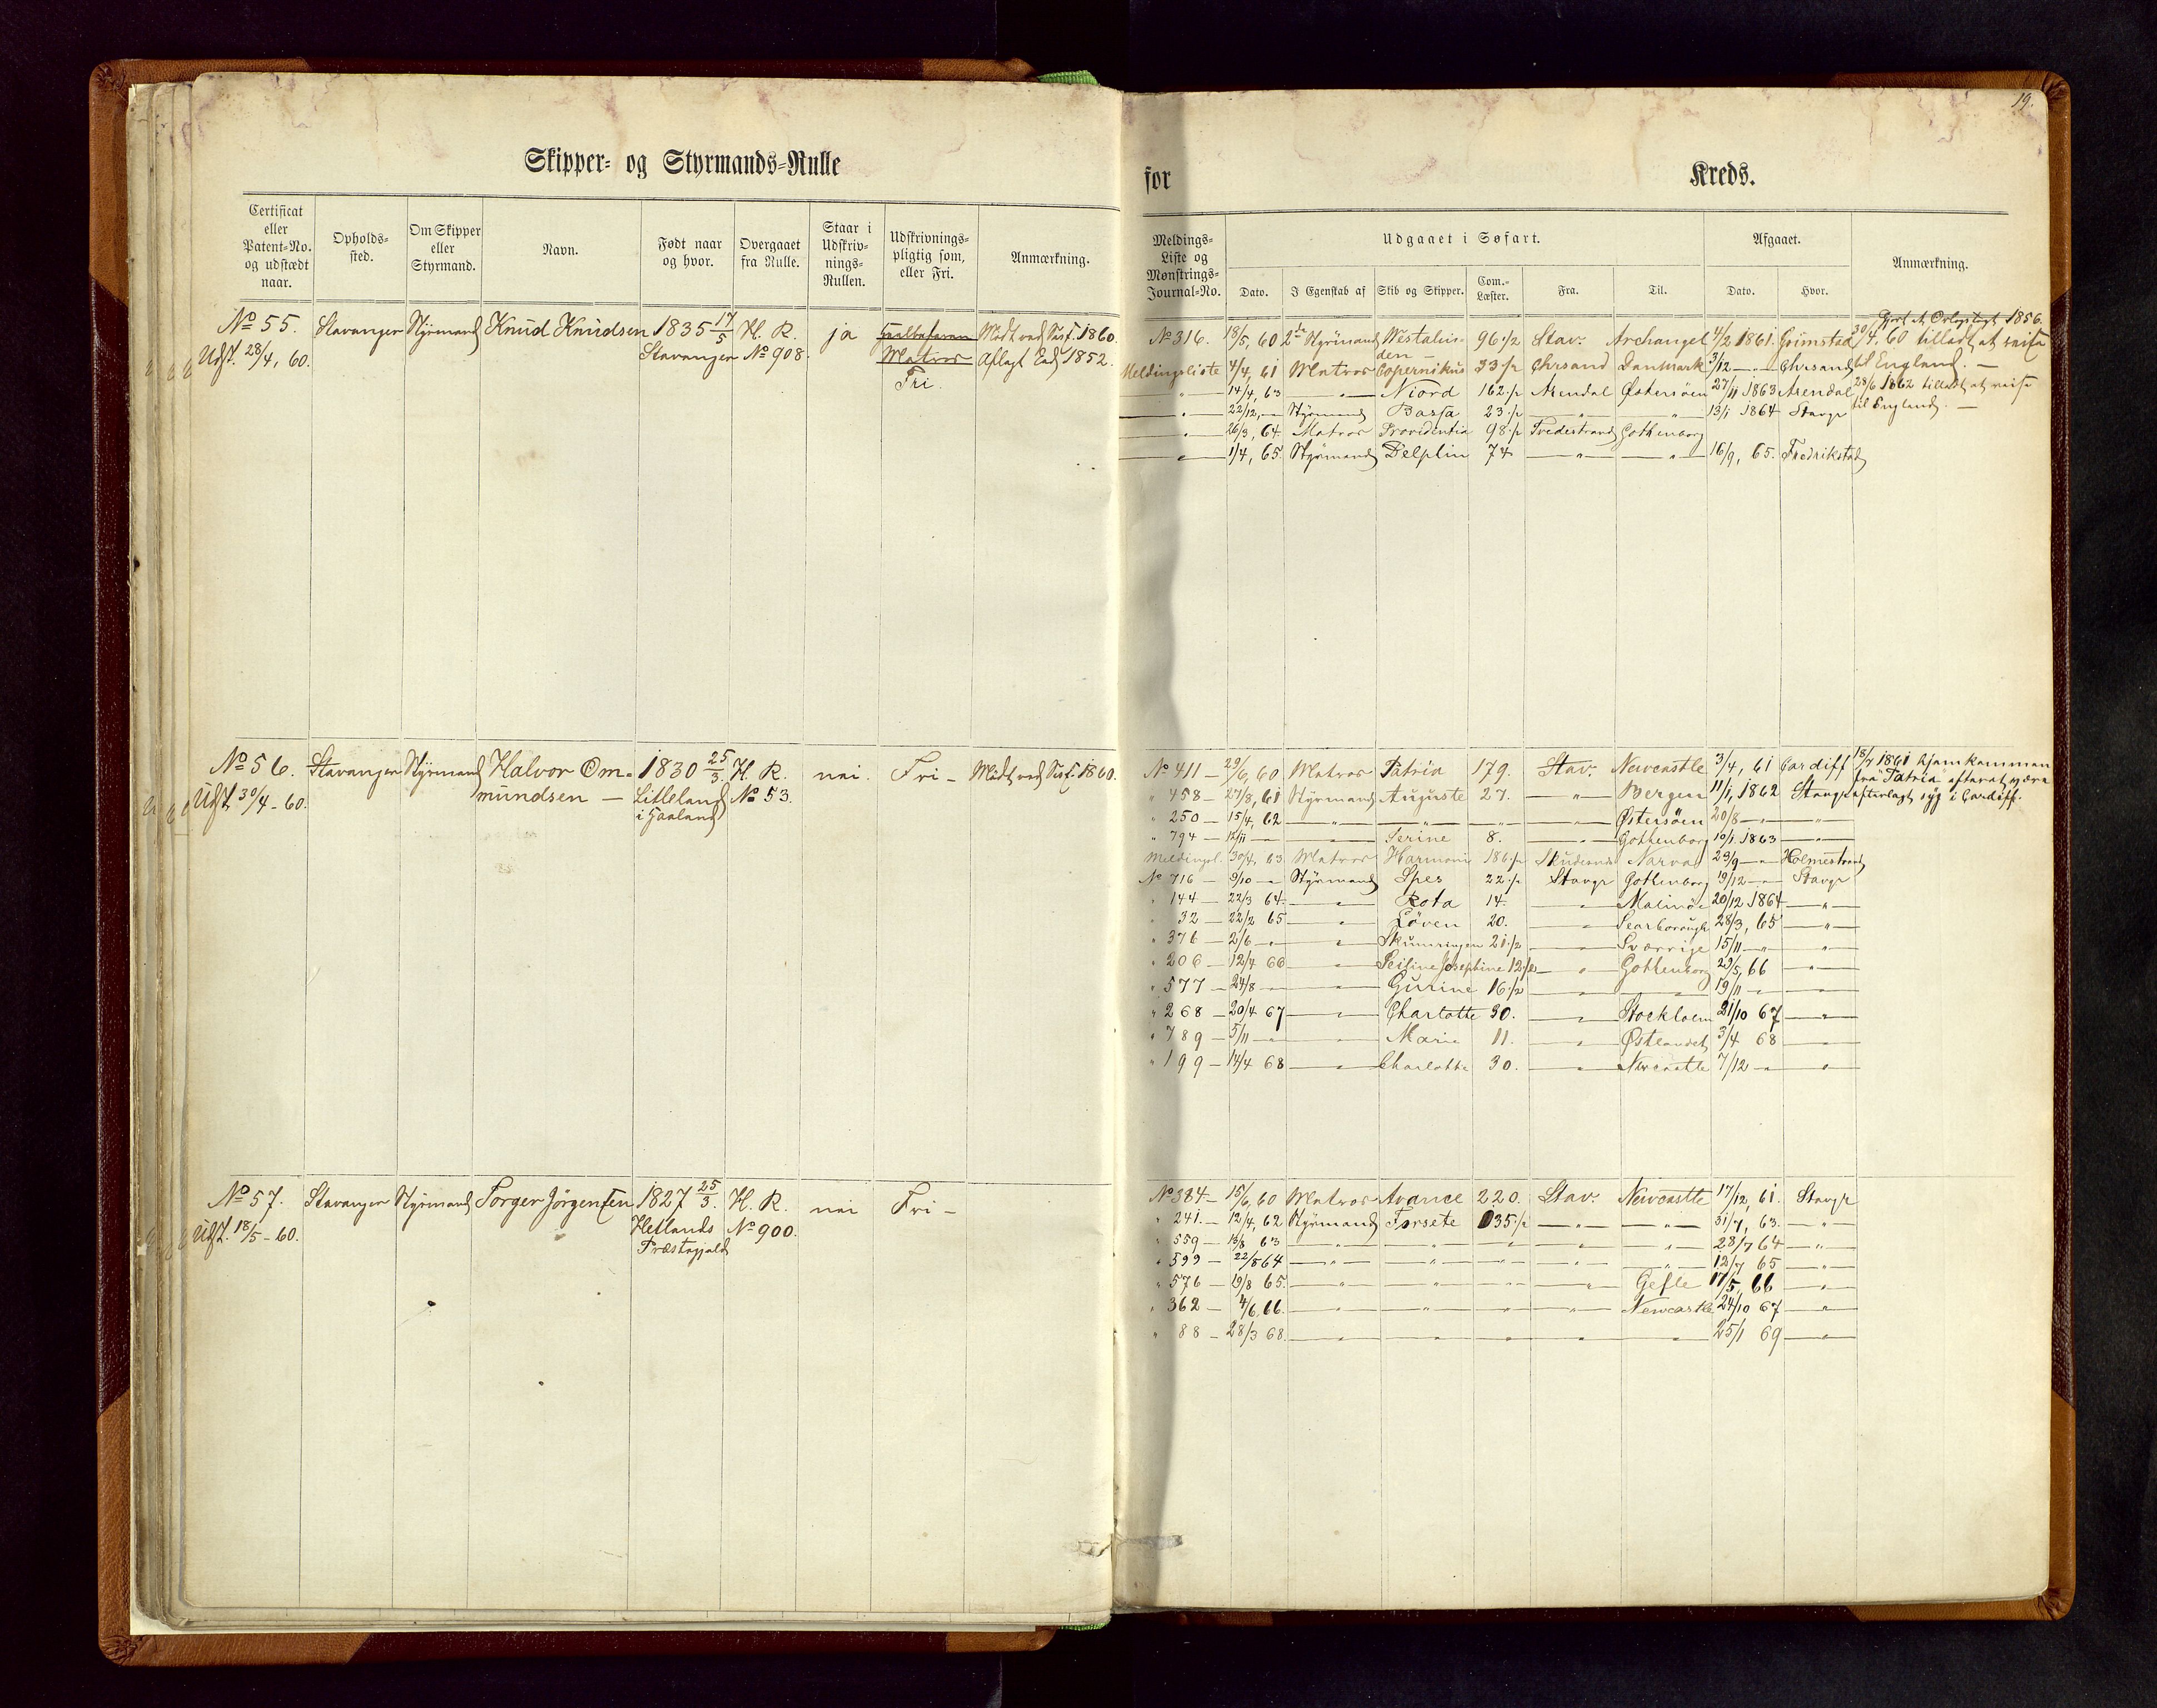 19.
Skipper- og Styrmands-Rulle
for Kreds.
Certificat eller Patent-No. og udstædt naar. | Opholds-sted. | Om Skipper eller Styrmand. | Navn. | Født naar og hvor. | Overgaaet fra Rulle. | Staar i Udskriv-nings-Rullen. | Udskrivnings-pligtig som, eller Fri. | Anmærkning.
Meldings-Liste og Mønstrings-Journal-No. | Udgaaet i Søfart. | Afgaaet. | Anmærkning.
Dato. | I Egenskab af | Skib og Skipper. | Com.-Læster. | Fra. | Til. | Dato. | Hvor.
No 55. Stavanger Styrmand Knud Knudsen 1835 17/5 H. R. ja
Udst. 28/4, 60. Stavanger No 908. Matros aflagt Ed 1852.
Fri.
1856.
No 316. 18/5, 60 2den Styrmand 96 1/2 Stav. Archangel 4/2 1861. Grimstad 30/4, 60 tilladt at reise
Meldingsliste 4/4, 61 Matros Copernikus 33 1/2 Chrsand Danmark 3/12 — " — Chrsand til England. —
— " — 14/4, 63 — " — Niord 162 1/2 Arendal Østersöen 27/11 1863 Arendal 28/6 1862 tilladt at reise
— " — 22/12, — " Styrmand Bassa 23 1/2 — " — — " — 13/1 1864 Stavgr til England. —
— " — 26/3, 64 Matros Providentia 98 1/2 Tvedestrand Gothenborg
— " — 1/4, 65. Styrmand Delphin 74 — " — — " — 16/9, 65. Fredrikstad
No 56. Stavanger Styrmand Halvor Om- 1830 25/3. H. R. nei. Fri —
Udst. 30/4 - 60. mundsen — Litleland No 53.
i Haaland
No 411 — 29/6, 60 Matros Patria 179. Stav. Newcastle 3/4, 61 Cardiff 18/7 1861 hjemkommen
" 458 — 27/8, 61 Styrmand Auguste 27. — " — Bergen 11/1, 1862 Stavgr fra Patria efter at være
efterlagt syg i Cardiff.
" 250 — 15/4, 62 — " — — " — — " — — " — Østersöen 20/8 — " — — " —
" 794 — 12/11 — " — — " — Serine 8. — " — Gothenborg 10/1 1863 — " —
Meldingsl. 30/4, 63 Matros Harmoni 186 1/2 Narva 29/9 — " — Holmestrand
No 716 — 9/10 — " — Styrmand Spes 22 1/2 Stavgr Gothenborg 19/12 — " — Stavgr
" 144 — 22/3 64 — " — Rota 14. — " — Malmöe 20/12 1864 — " —
" 32 — 22/2 65 — " — Löven 20. — " — Scarborough 28/3, 65 — " —
" 376 — 2/6 — " — — " — Skumringen 21 1/2 — " — Sverrige 15/11 — " — — " —
" 206 — 12/4 66 — " — Josephine 12 1/2 — " — Gothenborg 29/5, 66 — " —
" 577 — 24/8 — " — — " — Gurine 16 1/2 — " — — " — 19/11 — " — — " —
" 268 — 20/4 67 — " — Charlotte 30. — " — Stockholm 21/10 67 — " —
" 789 — 5/11 — " — — " — Marie 11. — " — Østlandet 3/4 68 — " —
" 199 — 14/4 68 — " — Charlotte 30. — " — Newcastle 7/12 — " — — " —
No 57. Stavanger Styrmand Torger Jörgensen 1827 25/3. H. R. nei Fri —
Udst. 18/5 - 60. Hetlands No 900.
Præstegjæld
No 384 — 15/6, 60 Matros Avance 220. Stav. Newcastle 17/12, 61. Stavgr
" 241. — 12/4, 62 Styrmand Forsete 135 1/2 — " — — " — 31/7, 63. — " —
" 559 — 13/8 63 — " — — " — — " — — " — — " — 28/7 64 — " —
" 599 — 22/8 64 — " — — " — — " — — " — — " — 12/7 65 — " —
" 576 — 19/8 65. — " — — " — — " — — " — Gefle 17/5, 66 — " —
" 362 — 4/6, 66. — " — — " — — " — — " — Newcastle 24/10 67 — " —
" 88 — 28/3 68. — " — — " — — " — — " — — " — 25/1 69 — " —